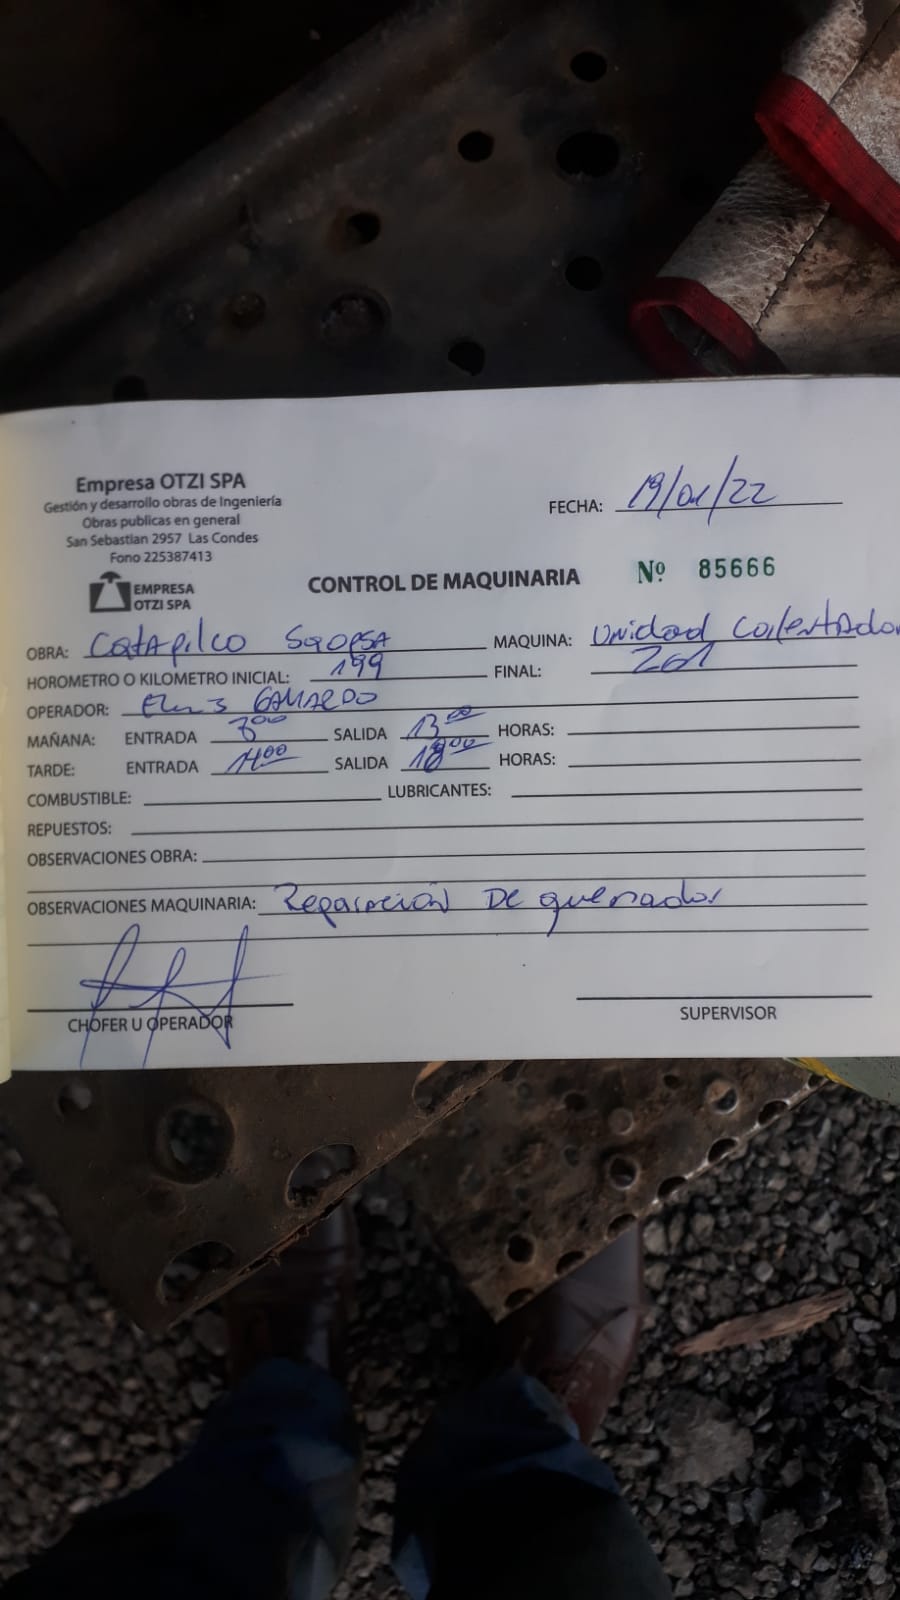 Empresa OTZI SPA
Gestión y desarrollo obras de Ingeniería
Obras publicas en general
San Sebastian 2957 Las Condes
Fono 225387413
EMPRESA
OTZI SPA
FECHA: 19/01/22
CONTROL DE MAQUINARIA Nº 85666
OBRA: Catapilco MAQUINA: Unidad
HOROMETRO O KILOMETRO INICIAL: 199 FINAL: 201
OPERADOR: GALLARDO
MAÑANA: ENTRADA SALIDA 13:00 HORAS:
TARDE: ENTRADA 14:00 SALIDA 18:00 HORAS:
COMBUSTIBLE: LUBRICANTES:
REPUESTOS:
OBSERVACIONES OBRA:
OBSERVACIONES MAQUINARIA: Reparación De quemador
CHOFER U OPERADOR
SUPERVISOR